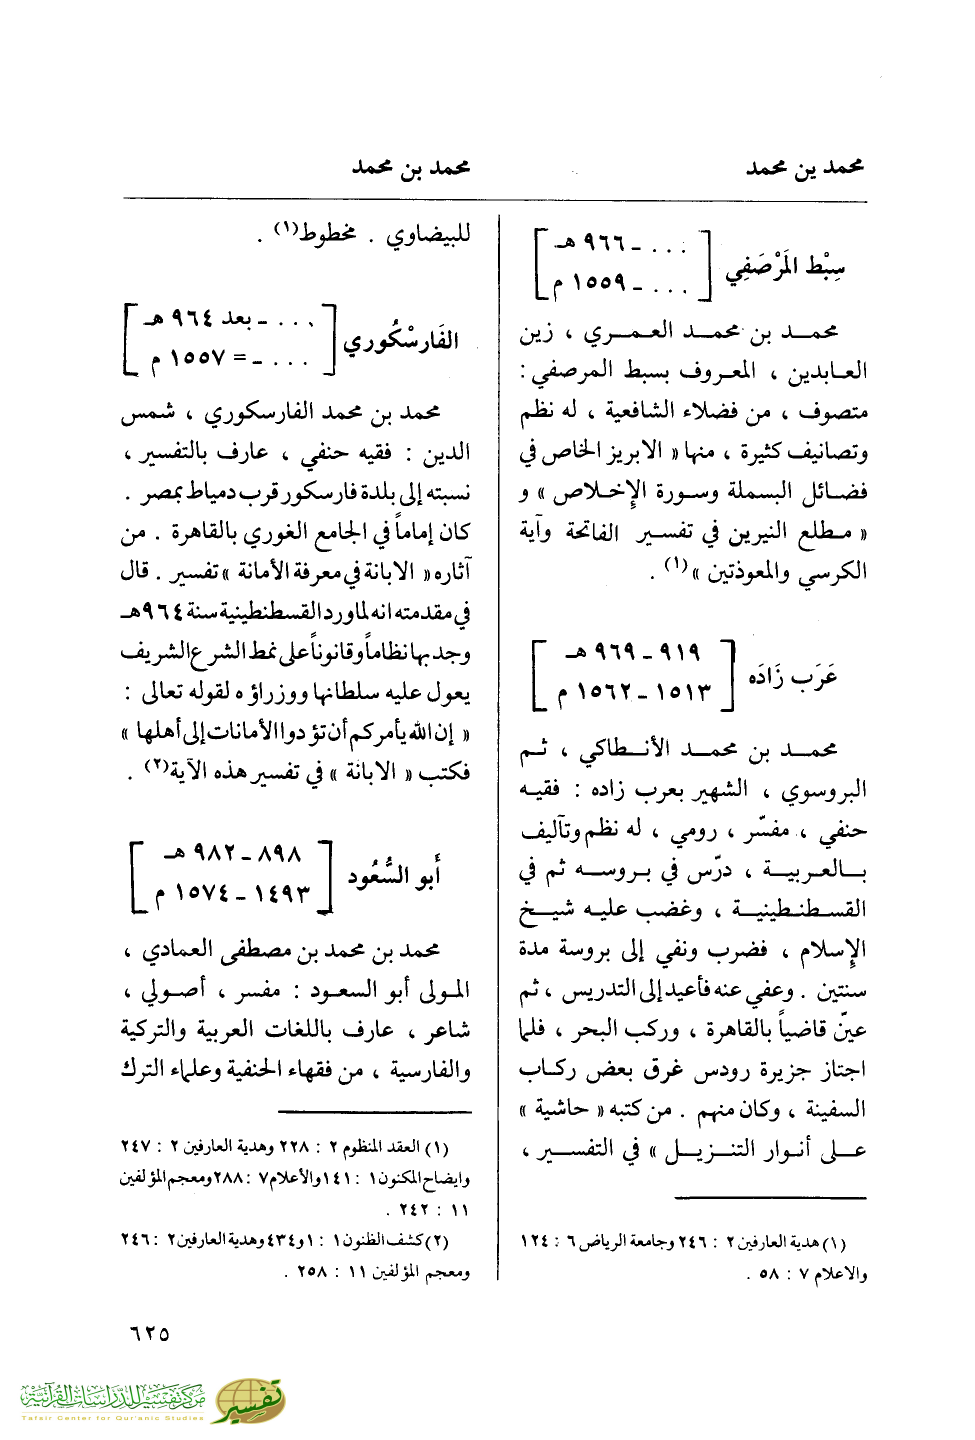 محمد ين محمد
محمد بن محمد
سِبْط المَرْصَفِي [ . . . ـ ٩٦٦ هـ
. . . ـ ١٥٥٩ م ]
محمد بن محمد العمري ، زين
العابدين ، المعروف بسبط المرصفي :
متصوف ، من فضلاء الشافعية ، له نظم
وتصانيف كثيرة ، منها « الابريز الخاص في
فضائل البسملة وسورة الإخلاص » و
« مطلع النيرين في تفسير الفاتحة وآية
الكرسي والمعوذتين »(١) .
عَرَب زَادَه [ ٩١٩ ـ ٩٦٩ هـ
١٥١٣ ـ ١٥٦٢ م ]
محمد بن محمد الأنطاكي ، ثم
البروسوي ، الشهير بعرب زاده : فقيه
حنفي ، مفسّر ، رومي ، له نظم وتآليف
بالعربية ، درّس في بروسه ثم في
القسطنطينية ، وغضب عليه شيخ
الإسلام ، فضرب ونفي إلى بروسة مدة
سنتين . وعفي عنه فأعيد إلى التدريس ، ثم
عينّ قاضياً بالقاهرة ، وركب البحر ، فلما
اجتاز جزيرة رودس غرق بعض ركاب
السفينة ، وكان منهم . من كتبه « حاشية »
على أنوار التنزيل » في التفسير ،
(١) هدية العارفين ٢ : ٢٤٦ وجامعة الرياض ٦ : ١٢٤
والاعلام ٧ : ٥٨ .
للبيضاوي . مخطوط(١) .
الفَارسْكُوري [ . . . ـ بعد ٩٦٤ هـ
. . . ـ = ١٥٥٧ م ]
محمد بن محمد الفارسكوري ، شمس
الدين : فقيه حنفي ، عارف بالتفسير ،
نسبته إلى بلدة فارسكور قرب دمياط بمصر .
كان إماماً في الجامع الغوري بالقاهرة . من
آثاره « الابانة في معرفة الأمانة » تفسير . قال
في مقدمته انه لما ورد القسطنطينية سنة ٩٦٤ هـ
وجد بها نظاماً وقانوناً على نمط الشرع الشريف
يعول عليه سلطانها ووزراؤه لقوله تعالى :
« إن الله يأمركم أن تؤدوا الأمانات إلى أهلها »
فكتب « الابانة » في تفسير هذه الآية(٢) .
أبو السُّعُود [ ٨٩٨ ـ ٩٨٢ هـ
١٤٩٣ ـ ١٥٧٤ م ]
محمد بن محمد بن مصطفى العمادي ،
المولى أبو السعود : مفسر ، أصولي ،
شاعر ، عارف باللغات العربية والتركية
والفارسية ، من فقهاء الحنفية وعلماء الترك
(١) العقد المنظوم ٢ : ٢٢٨ وهدية العارفين ٢ : ٢٤٧
وايضاح المكنون ١ : ١٤١ والأعلام ٧ : ٢٨٨ ومعجم المؤلفين
١١ : ٢٤٢ .
(٢) كشف الظنون ١ : ١ و٤٣٤ وهدية العارفين ٢ : ٢٤٦
ومعجم المؤلفين ١١ : ٢٥٨ .
٦٢٥
مركز تفسير للدراسات القرآنية
Tafsir Center for Qur'anic Studies
تفسير